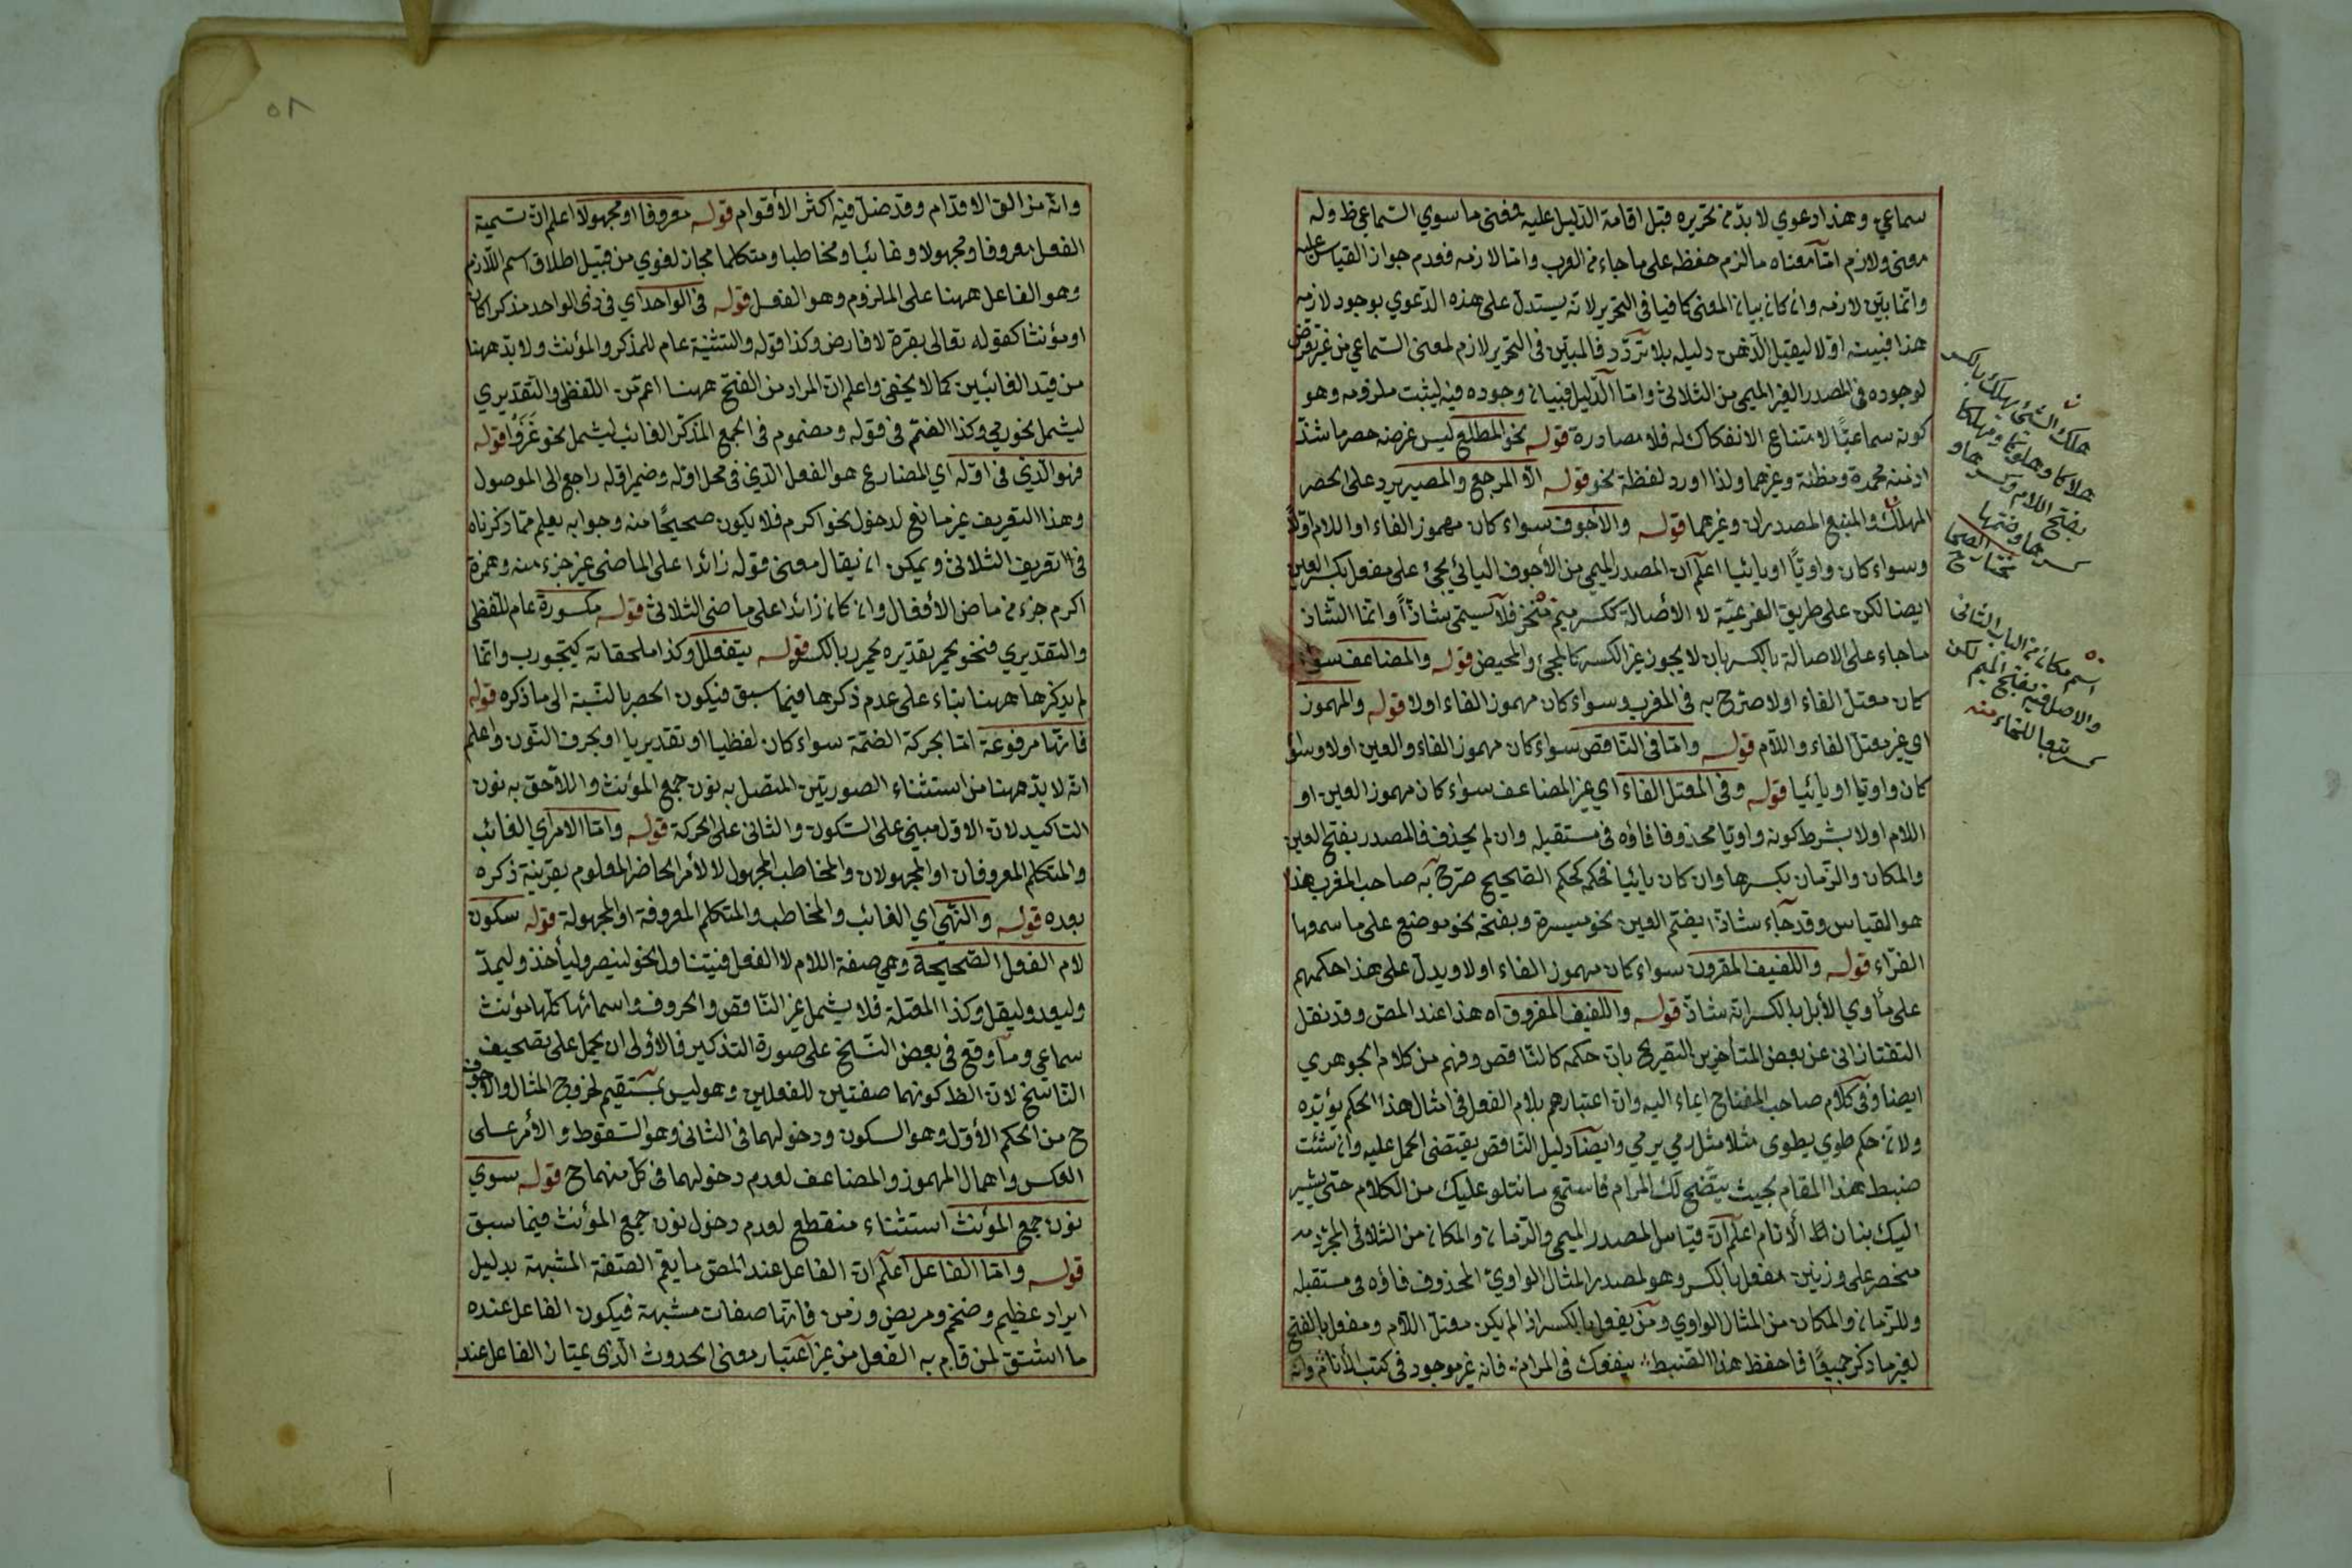 سماعي وهذا دعوي لا بدّ من تحريره قبل اقامة الدّليل عليه فمعنى ما سوي السّماعي ظ وله
معنى ولازم امّا معناه ما لزم حفظه على ما جاء من العرب وامّا لازمه فعدم جواز القياس عليه
وانّما بيّن لازمه وان كان بيان المعنى كافيا في التحرير لانّه يستدلّ على هذه الدّعوي بوجود لازمه
هذا فبيّنه اوّلا ليقبل الذّهن دليله بلا تردّد فالمبيّن في التحرير لازم لمعنى السّماعي من غير تعرّض
لوجوده في المصدر الغير الميمي من الثلاثي وامّا الدّليل فبيان وجوده فيه ليثبت ملزومه وهو
كونه سماعيًّا لامتناع الانفكاك له فلا مصادرة قوله نحو المطلع ليس غرضه حصر ما شذّ
اذ منه محمدة ومظنّة وغيرهما ولذا اورد لفظة نحو قوله الّا المرجع والمصير يرد على الحصر
المهلك والمنبع المصدران وغيرهما قوله والأجوف سواء كان مهموز الفاء او اللام اولا
وسواء كان واويًّا او يائيا اعلم ان المصدر الميمي من الأجوف اليائي يجئ على مفعل بكسر العين
ايضا لكن على طريق الفرعيّة لا الأصالة ككسر ميم منخر فلا يسمّى شاذّاً وانّما الشّاذ
ما جاء على الاصالة بالكسر بان لا يجوز غير الكسر كالمجئ والمحيض قوله والمضاعف سواء
كان معتلّ الفاء اولا صرّح به في المغرب وسواء كان مهموز الفاء اولا قوله والمهموز
اي غير معتلّ الفاء واللّام قوله وامّا في النّاقص سواء كان مهموز الفاء والعين اولا وسواء
كان واويّا او يائيّا قوله وفي المعتلّ الفاء اي غير المضاعف سواء كان مهموز العين او
اللام اولا بشرط كونه واويّا محذوفا فاؤه في مستقبله وان لم يحذف فالمصدر بفتح العين
والمكان والزّمان بكسرها وان كان يائيا فحكمه كحكم الصّحيح صرّح به صاحب المغرب هذا
هو القياس وقد جاء شاذّا بضم العين نحو ميسرة وبفتحه نحو موضع على ما سمعها
الفرّاء قوله واللفيف المقرون سواء كان مهموز الفاء اولا ويدلّ على هذا حكمهم
على مأوي الأبل بالكسر انّه شاذّ قوله واللفيف المفروق اه هذا عند المص وقد نقل
التفتازاني عن بعض المتأخرين التصريح بانّ حكمه كالنّاقص وفهم من كلام الجوهري
ايضا وفي كلام صاحب المفتاح ايماء اليه وانّ اعتبارهم بلام الفعل في امثال هذا الحكم يؤيّده
ولانّ حكم طوي يطوى مثلا مثل رمي يرمي وايضا دليل النّاقص يقتضى الحمل عليه وان شئت
ضبط هذا المقام بحيث يتّضح لك المرام فاستمع ما نتلو عليك من الكلام حتّى يشير
اليك بنان الأنام اعلم انّ قياس المصدر الميمي والزّمان والمكان من الثلاثي المجرّد
منحصر على وزنين مفعل بالكسر وهو لمصدر المثال الواوي المحذوف فاؤه في مستقبله
وللزّمان والمكان من المثال الواوي ومن يفعل بالكسر اذ الم يكن معتلّ اللّام ومفعل بالفتح
لغير ما ذكر جميعًا فاحفظ هذا الضبط ينفعك في المرام فانه غير موجود في كتب الأنام وانّه
هلك الشئ يهلك بالكسر
هلاكا وهلوكا ومهلكا
بفتح اللام وكسرها و
ضمها
مختار الصحاح
اسم مكان من الباب الثانى
والاصل فيه بفتح الميم لكن
كسر تبعا للخاء منه
٥٨
وانّه مزالق الاقدام وقد ضلّ فيه اكثر الأقوام قوله معروفا او مجهولا اعلم انّ تسمية
الفعل معروفا ومجهولا وغائبا ومخاطبا ومتكلما مجاز لغوي من قبيل اطلاق اسم اللّازم
وهو الفاعل ههنا على الملزوم وهو الفعل قوله في الواحد اي في ذى الواحد مذكرا كان
او مؤنثا كقوله تعالى بقرة لا فارض وكذا قوله والتثنية عام للمذكر والمؤنث ولا بدّ ههنا
من قيد الغائبين كما لا يخفى واعلم انّ المراد من الفتح ههنا اعم من اللّفظي والتّقديري
ليشمل نحو رمي وكذا الضّم في قوله ومضموم في الجمع المذكّر الغائب ليشمل نحو غَزَوْا قوله
فهو الّذي في اوّله اي المضارع هو الفعل الّذي في محل اوّله وضمير اوّله راجع الى الموصول
وهذا التعريف غير مانع لدخول نحو اكرم فلا يكون صحيحًا منه وجوابه يعلم ممّا ذكرناه
في تعريف الثلاثي ويمكن ان يقال معنى قوله زائدا على الماضى غير جزء منه وهمزة
اكرم جزء من ماض الأفعال وان كان زائدا على ماضى الثلاثي قوله مكسورة عام للّفظي
والتقديري فنحو يحمرّ تقديره يحمرر بالكسر قوله يتفعلل وكذا ملحقاته كيتجورب وانّما
لم يذكرها ههنا بناء على عدم ذكرها فيما سبق فيكون الحصر بالنّسبة الى ما ذكره قوله
فانّها مرفوعة امّا بحركة الضّمة سواء كان لفظيا او تقديريا او بحرف النّون واعلم
انّه لا بدّ ههنا من استثناء الصورتين المتصل به نون جمع المؤنث واللّاحق به نون
التاكيد لانّ الاوّل مبنى على السّكون والثاني على الحركة قوله وامّا الامر اي الغائب
والمتكلم المعروفان او المجهولان والمخاطب المجهول لا الأمر الحاضر المعلوم بقرينة ذكره
بعده قوله والنّهي اي الغائب والمخاطب والمتكلم المعروفة او المجهولة قوله سكون
لام الفعل الصّحيحة وهي صفة اللام لا الفعل فيتناول نحو لينصر وليأخذ وليمدّ
وليعد وليقل وكذا المعتلة فلا يشمل غير النّاقص والحروف واسمائها كلّها مؤنث
سماعي وما وقع في بعض النّسخ على صورة التذكير فالأولى ان يحمل على تصحيف
النّاسخ لانّ الظ كونهما صفتين للفعلين وهو ليس بمستقيم لخروج المثال والاجوف
ح من الحكم الأوّل وهو السكون ودخولهما في الثاني وهو السّقوط والأمر على
العكس واهمال المهموز والمضاعف لعدم دخولهما في كل منهما ح قوله سوي
نون جمع المؤنث استثناء منقطع لعدم دخول نون جمع المؤنث فيما سبق
قوله وامّا الفاعل اعلم انّ الفاعل عند المص ما يعم الصّفة المشبهة بدليل
ايراد عظيم وضخم ومريض وزمن فانّها صفات مشبهة فيكون الفاعل عنده
ما اشتق لمن قام به الفعل من غير اعتبار معنى الحدوث الّذى يمتاز الفاعل عند